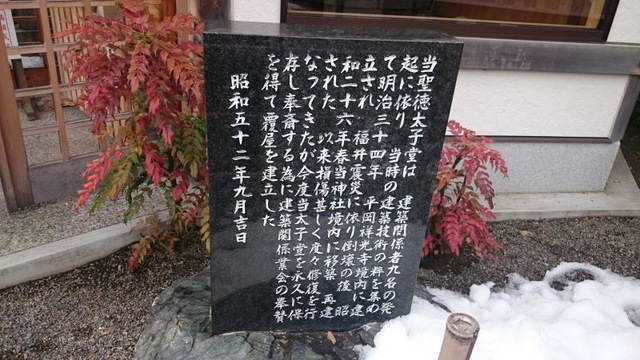 当聖徳太子堂は 建築関係者九名の発
起に依り 当時の建築技術の粋を集め
て明治三十四年 平岡祥光寺境内に建
立され 福井震災に依り倒壊の後 昭
和二十六年春当神社境内に移築 再建
された 以来損傷甚しく度々修復を行
なってきたが今度当太子堂を永久に保
存し奉斎する為に建築関係業会の奉賛
を得て覆屋を建立した
昭和五十二年九月吉日